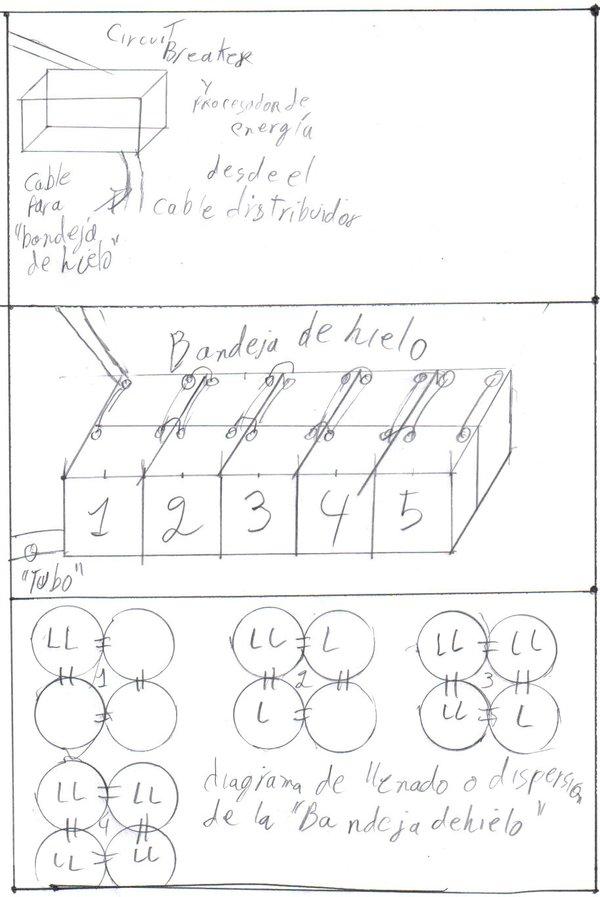 Circuit
Breaker
y
Procesador de
energía
desde el
cable distribuidor
cable
para
"bandeja
de hielo"
Bandeja de hielo
1 2 3 4 5
"Tubo"
LL
1
LL L
2
L
LL LL
3
LL L
LL LL
4
LL LL
diagrama de llenado o dispersión
de la "Bandeja de hielo"